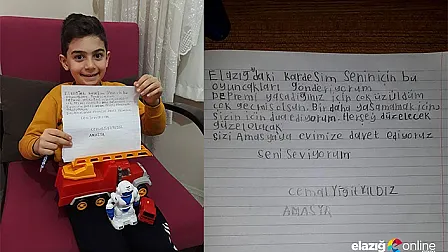 Elazığ'daki Kardeşim Senin için bu
oyuncakları gönderiyorum
Depremi yaşadığınız için çok üzüldüm
çok geçmiş olsun. Bir daha yaşamamak için
Sizin için dua ediyorum. Herşey düzelecek
güzel olacak
sizi Amasya'ya evimize davet ediyoruz
Seni Seviyorum
Cemal Yiğit YILDIZ
AMASYA
elazığ online